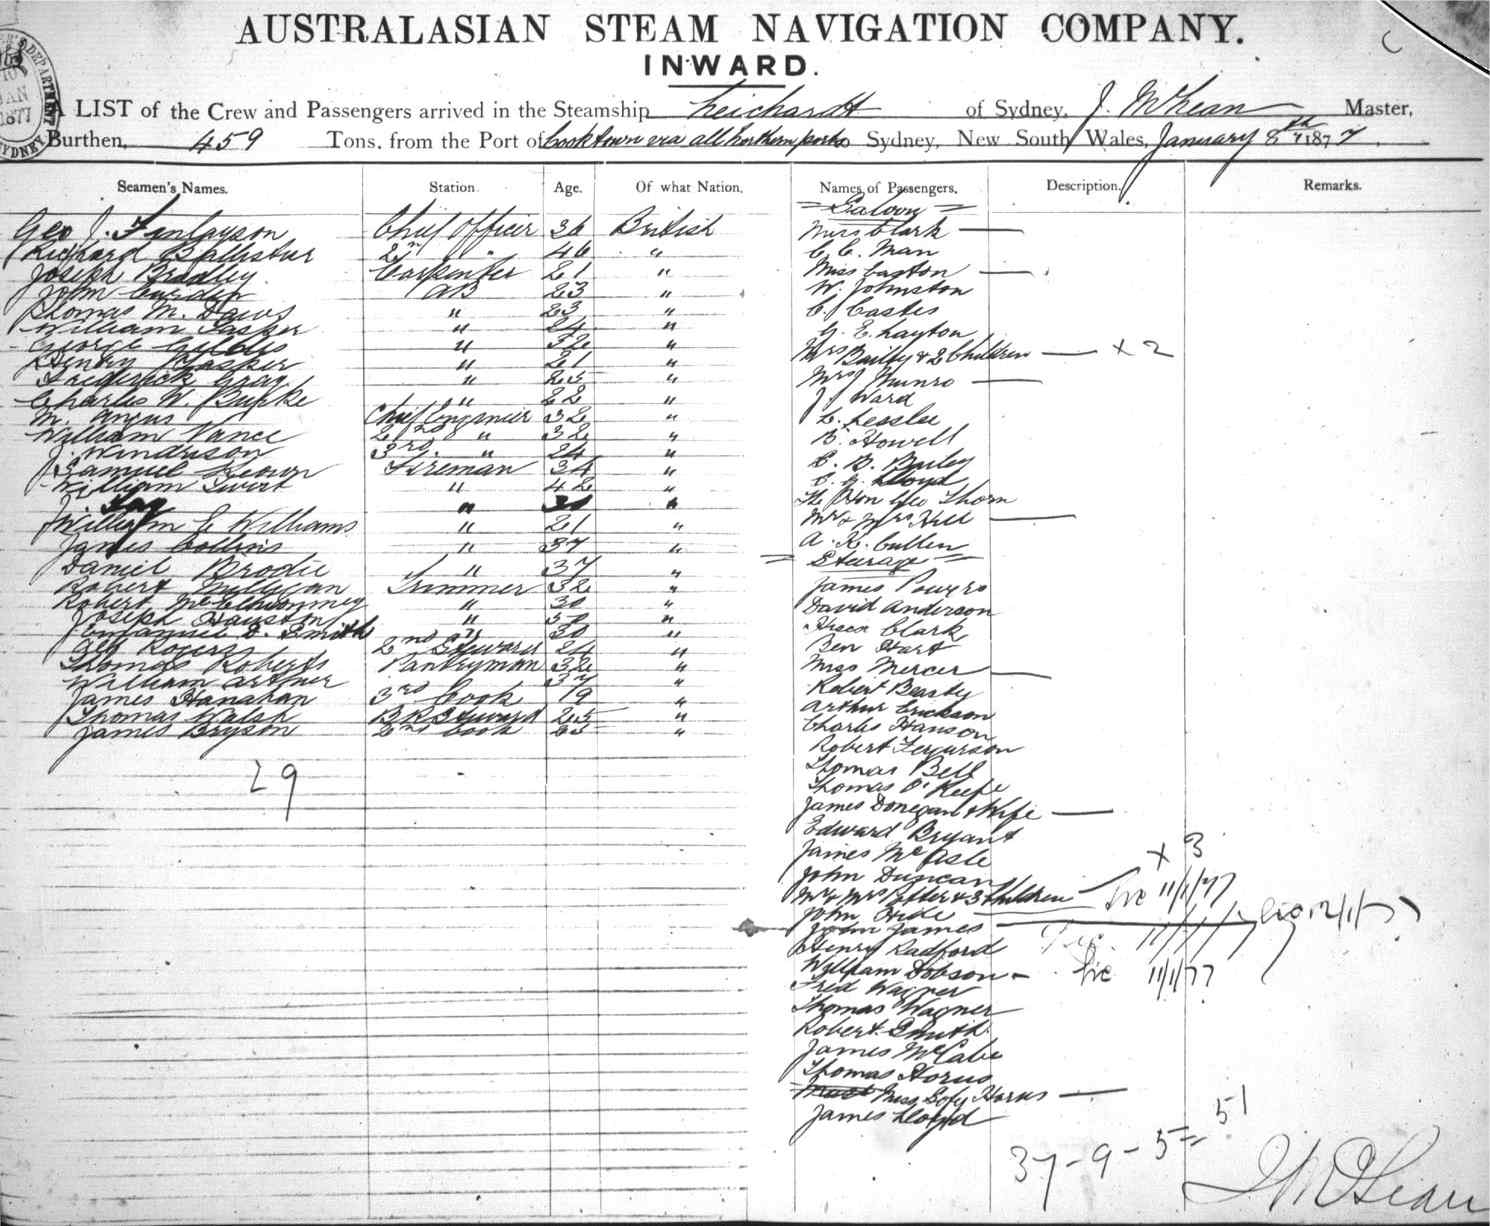 AUSTRALASIAN STEAM NAVIGATION COMPANY.
INWARD.
A LIST of the Crew and Passengers arrived in the Steamship Leichardt of Sydney, J. McLean Master,
Burthen, 459 Tons, from the Port of Cooktown via all Northern ports Sydney, New South Wales, January 8th 1877.
Seamen's Names. Station. Age. Of what Nation.
Geo J. Finlayson Chief Officer 36 British
Richard Ballister 2nd " 46 "
Joseph Bradley Carpenter 21 "
John AB 23 "
Thomas M. Daws " 23 "
William Tasper " 24 "
George Gibbs " 32 "
Henry " 21 "
Frederick Gray " 25 "
Charles W. Burke " 22 "
M. Angus Chief Engineer 32 "
William Vance 2nd " 32 "
J. 3rd " 24 "
Samuel Brown Fireman 34 "
William " 42 "
William C Williams " 21 "
James Collins " 37 "
Daniel Brodie " 37 "
Robert Milligan Trimmer 32 "
Robert " 30 "
Joseph Houston " 30 "
Emanuel D. Smith " 30 "
Geo Rogers 2nd Steward 24 "
Thomas Roberts Pantryman 32 "
William Arthur 37 "
James Hanahan 3rd Cook 19 "
Thomas Walsh Steward 25 "
James Bryson 2nd Cook 25 "
29
Names of Passengers, Description. Remarks.
= Saloon =
Miss Clark —
C. C. Man
Miss Caston —
W. Johnston
C. J. Castes
G. E. Layton
Mrs Bailey & 2 Children — x 2
Mrs Munro —
J J Ward
C. Lesslie
B. Howell
C. B. Bailey
C. G. Lloyd
The Hon Geo Thorn
Mr & Mrs Hill —
A. K. Cullen
= Steerage =
James Powers
David Anderson
Clark
Ben Hart
Miss Mercer —
Robert Beasly
Arthur Erickson
Charles Hanson
Robert Fergurson
Thomas Bell
Thomas O'Keefe
James Donegan & Wife —
Edward Bryant
James McAsle
John Duncan x 3
Mr & Mrs Potter & 3 Children — 11/1/77
John Hide — 12/1/77
John James — 11/1/77
Henry Radford
William Dobson — 11/1/77
Fred Wagner
Thomas Wagner
Robert Smith
James McCabe
Thomas Horus
Miss Sofy Horus —
James Lloyd
37 - 9 - 5 = 51
J McLean